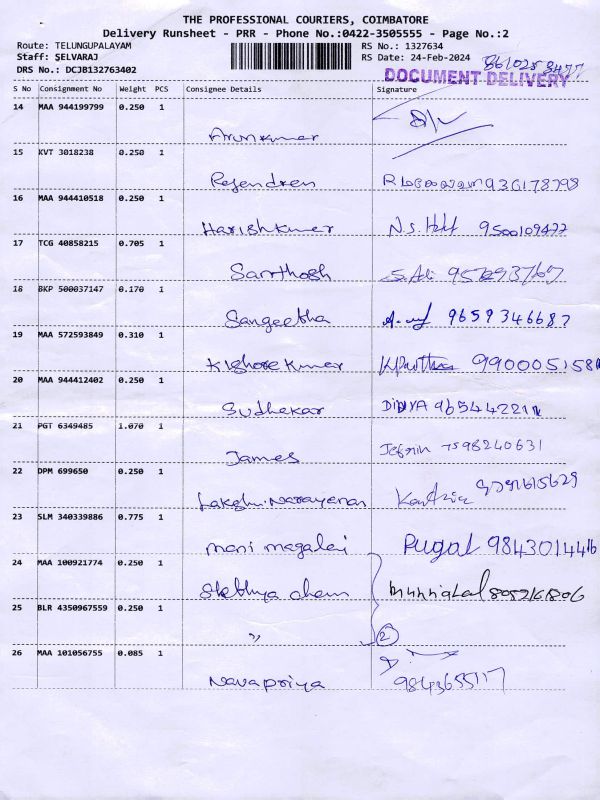 THE PROFESSIONAL COURIERS, COIMBATORE
Delivery Runsheet - PRR - Phone No.:0422-3505555 - Page No.:2
Route: TELUNGUPALAYAM RS No.: 1327634
Staff: SELVARAJ RS Date: 24-Feb-2024
DRS No.: DCJB132763402 DOCUMENT DELIVERY
S No Consignment No Weight PCS Consignee Details Signature
14 MAA 944199799 0.250 1
Arunkumar
15 KVT 3018238 0.250 1
Rajendren
16 MAA 944410518 0.250 1
Harishkumar N.S. 9500109477
17 TCG 40858215 0.705 1
Santhosh
18 BKP 500037147 0.170 1
Sangeetha 9659346687
19 MAA 572593849 0.310 1
Kishorekumar
20 MAA 944412402 0.250 1
Sudhakar
21 PGT 6349485 1.070 1
James 7598240631
22 DPM 699650 0.250 1
Lakshmi Narayanan
23 SLM 340339886 0.775 1
Mani megalai Pugal
24 MAA 100921774 0.250 1
25 BLR 4350967559 0.250 1
" 2
26 MAA 101056755 0.085 1
Navapriya 9843655117